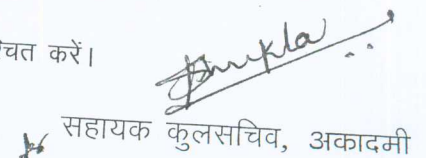 चित करें।
Shukla
सहायक कुलसचिव, अकादमी